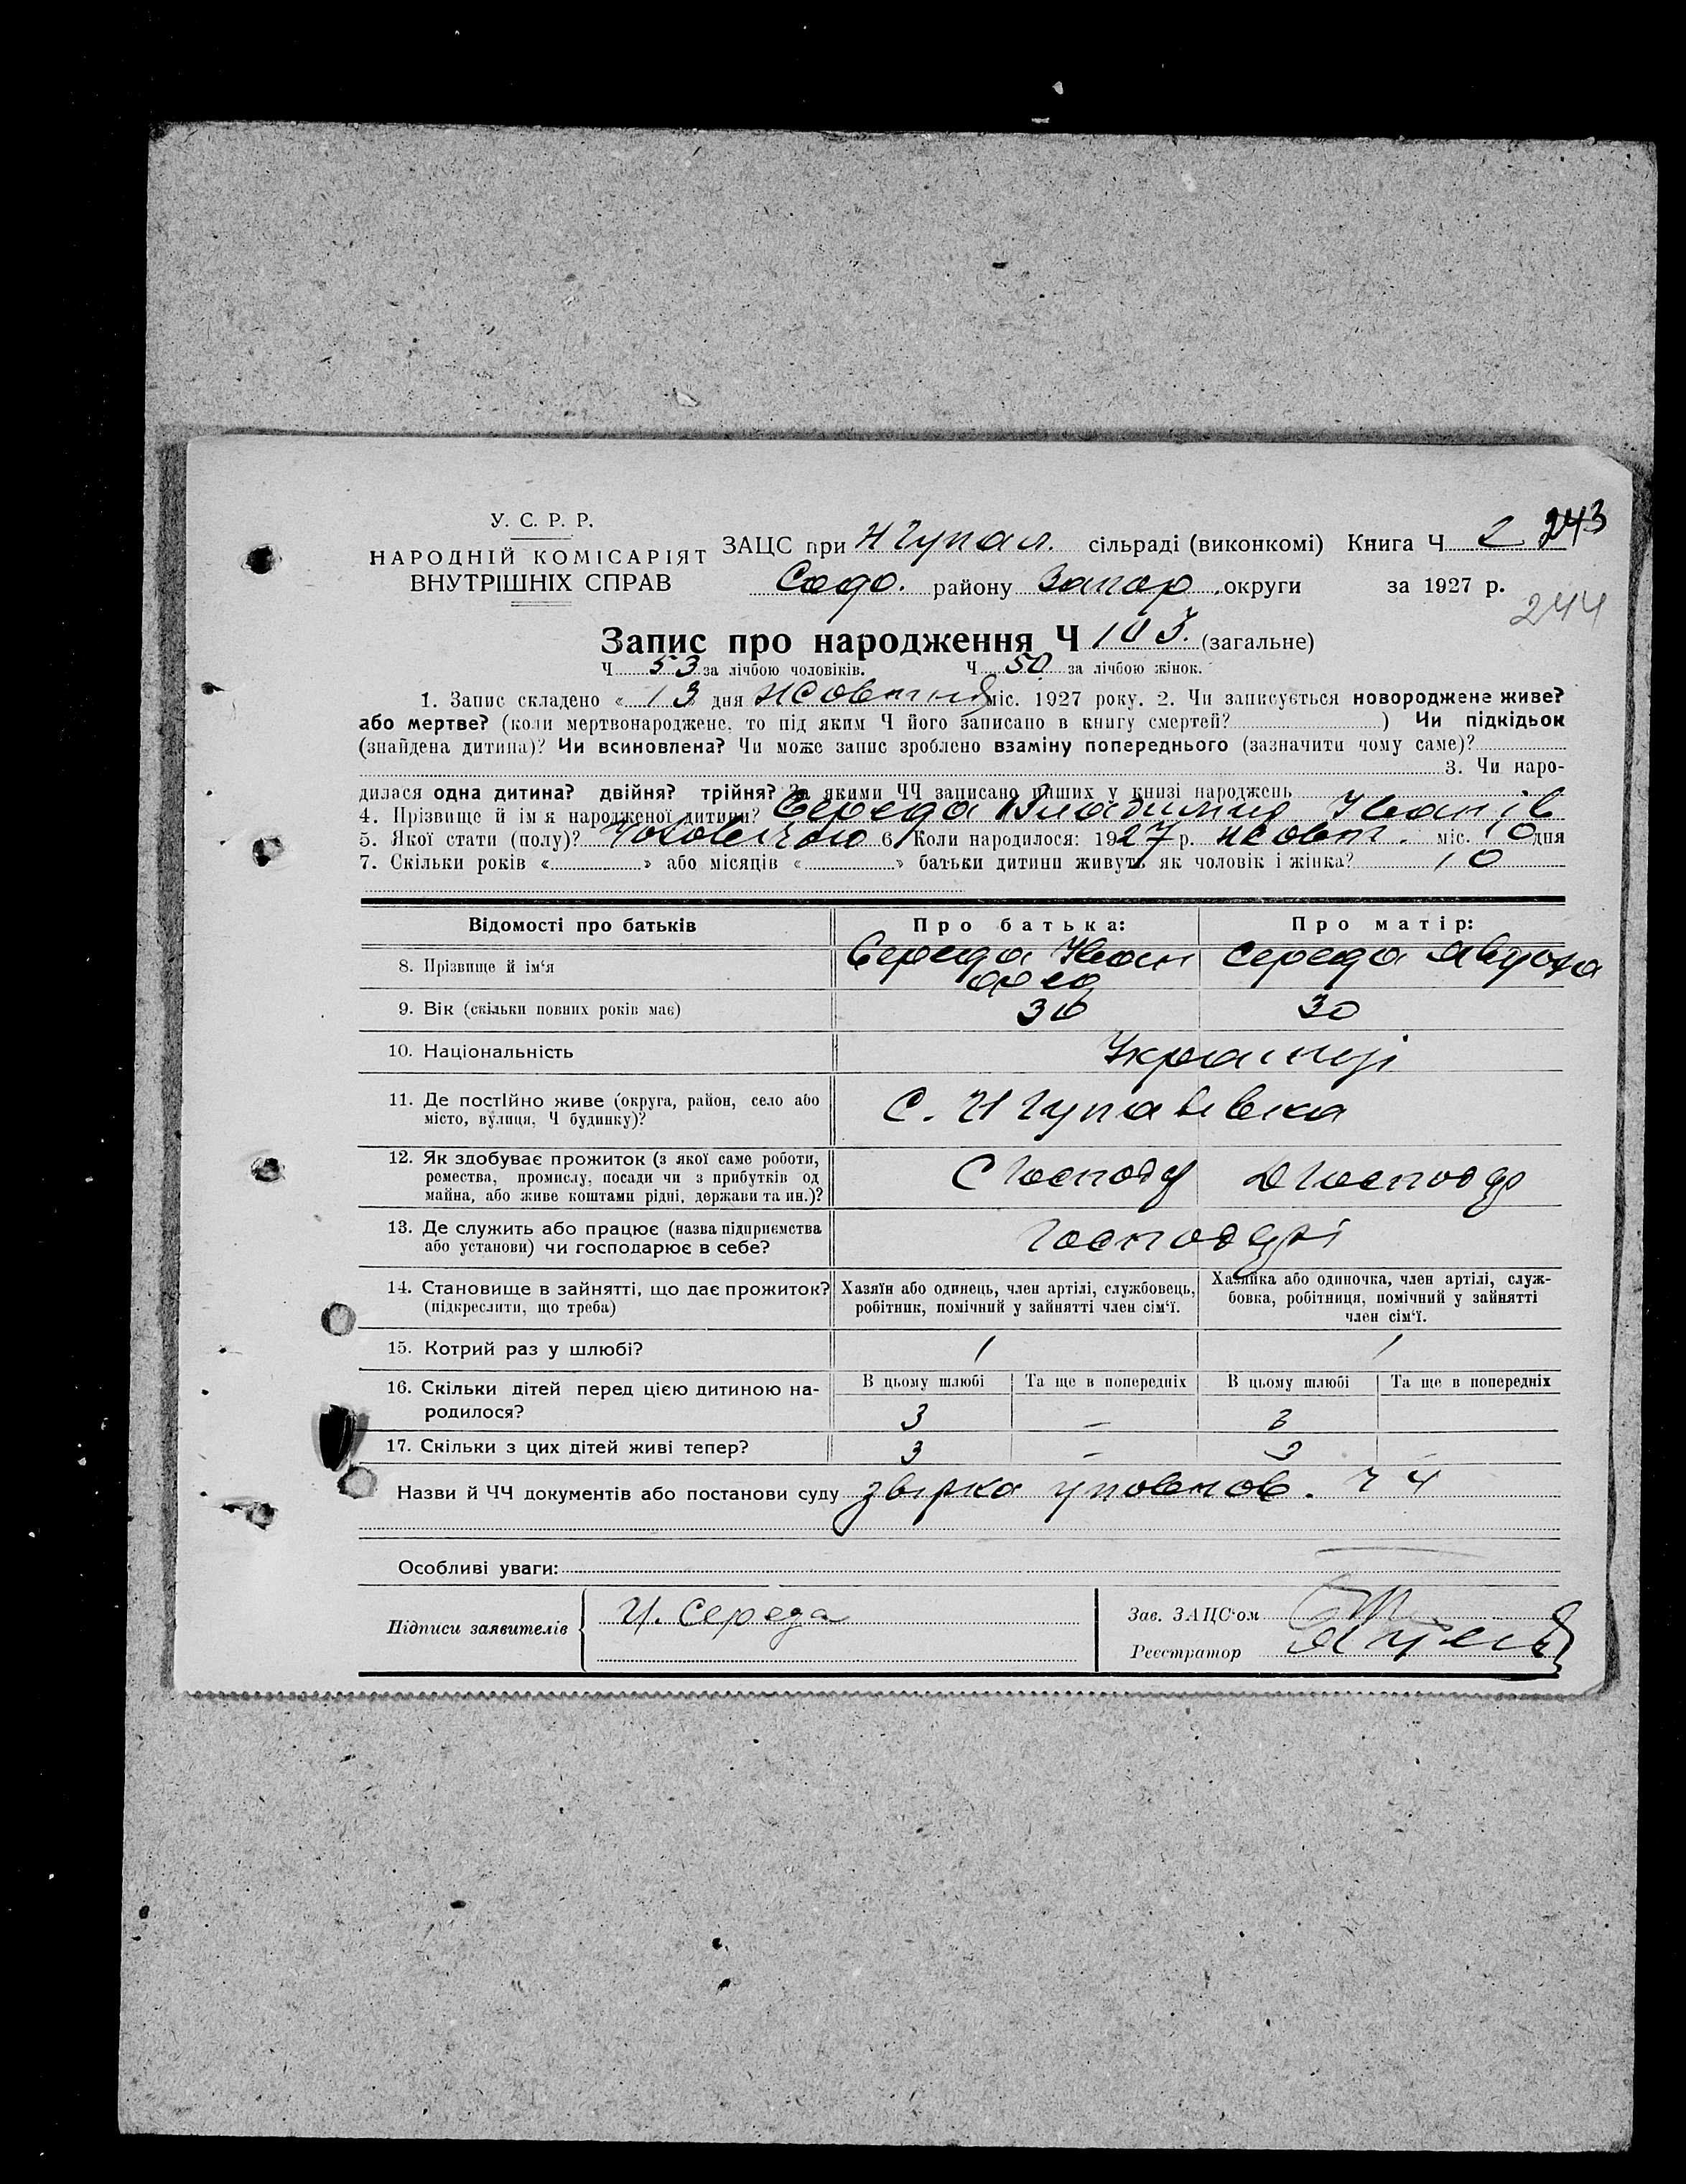 У. С. Р. Р.
НАРОДНІЙ КОМІСАРІЯТ
ВНУТРІШНІХ СПРАВ
ЗАЦС при сільраді (виконкомі) Книга Ч 2 243
району Запор. округи за 1927 р.
244
Запис про народження Ч 103. (загальне)
Ч 53 за лічбою чоловіків. Ч 50 за лічбою жінок.
1. Запис складено « 13 дня жовтня міс. 1927 року. 2. Чи записується новороджене живе?
або мертве? (коли мертвонароджене, то під яким Ч його записано в книгу смертей? ) Чи підкідьок
(знайдена дитина)? Чи всиновлена? Чи може запис зроблено взаміну попереднього (зазначити чому саме)?
3. Чи наро-
дилася одна дитина? двійня? трійня? За якими ЧЧ записано інших у книзі народжень
4. Прізвище й ім'я народженої дитини? Середа Владимир Іванів
5. Якої стати (полу)? 6. Коли народилося: 1927 р. жовт. міс. 10 дня
7. Скільки років « » або місяців « » батьки дитини живуть як чоловік і жінка? 10
Відомості про батьків Про батька: Про матір:
8. Прізвище й ім'я Середа Іван Середа Явдоха
Фед
9. Вік (скільки повних років має) 36 30
10. Національність Українці
11. Де постійно живе (округа, район, село або
місто, вулиця, Ч будинку)? С.
12. Як здобуває прожиток (з якої саме роботи,
ремества, промислу, посади чи з прибутків од
майна, або живе коштами рідні, держави та ин.)?
13. Де служить або працює (назва підприємства
або установи) чи господарює в себе?
14. Становище в зайнятті, що дає прожиток? Хазяїн або одинець, член артілі, службовець, Хазяйка або одиночка, член артілі, служ-
(підкреслити, що треба) робітник, помічний у зайнятті член сім'ї. бовка, робітниця, помічний у зайнятті
член сім'ї.
15. Котрий раз у шлюбі? 1 1
16. Скільки дітей перед цією дитиною на- В цьому шлюбі Та ще в попередніх В цьому шлюбі Та ще в попередніх
родилося? 3 – 3
17. Скільки з цих дітей живі тепер? 3 – 3 –
Назви й ЧЧ документів або постанови суду звірка уповнов. Ч 4
Особливі уваги:
Підписи заявителів И. Середа
Зав. ЗАЦС'ом
Реєстратор